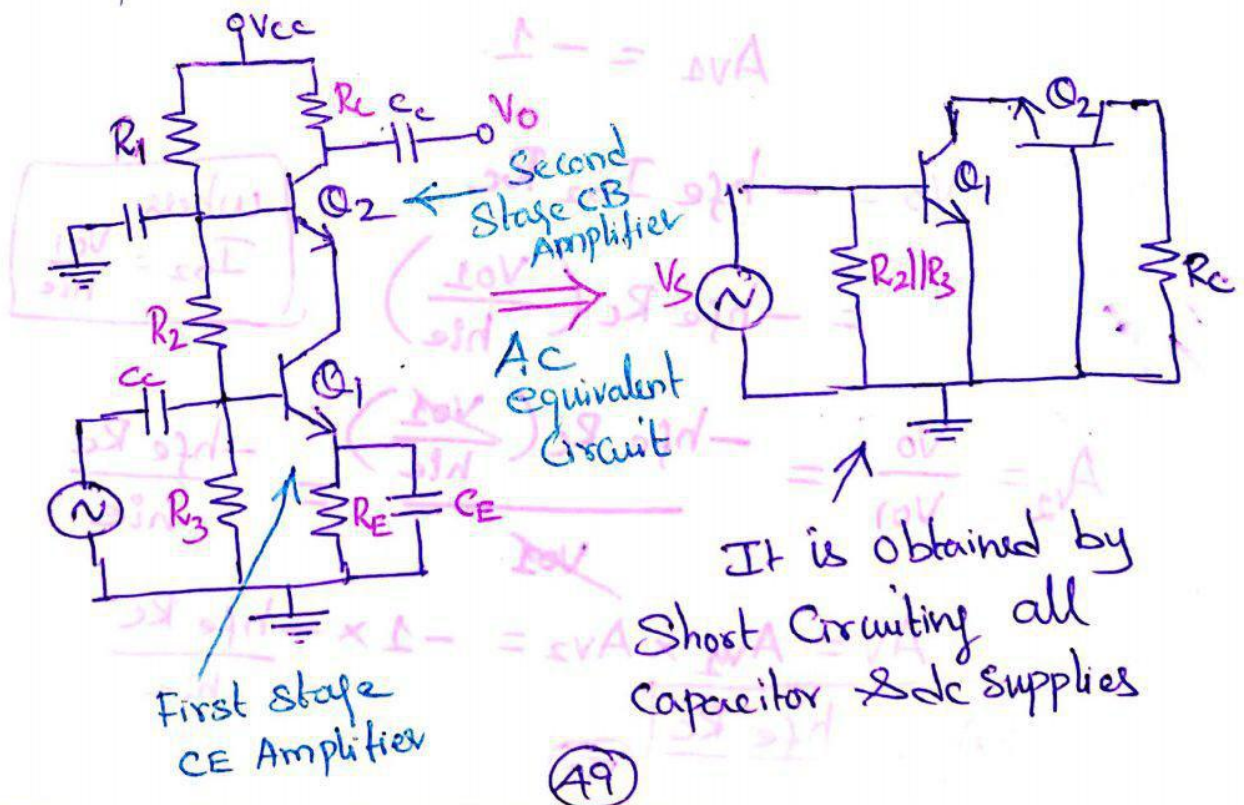 VCC
R1
RC
Cc
VO
Q2
Second
Stage CB
Amplifier
R2
Cc
Q1
R3
RE
CE
First stage
CE Amplifier
AC
equivalent
Circuit
VS
R2||R3
Q1
Q2
RC
It is obtained by
Short Circuiting all
Capacitor & dc supplies
49